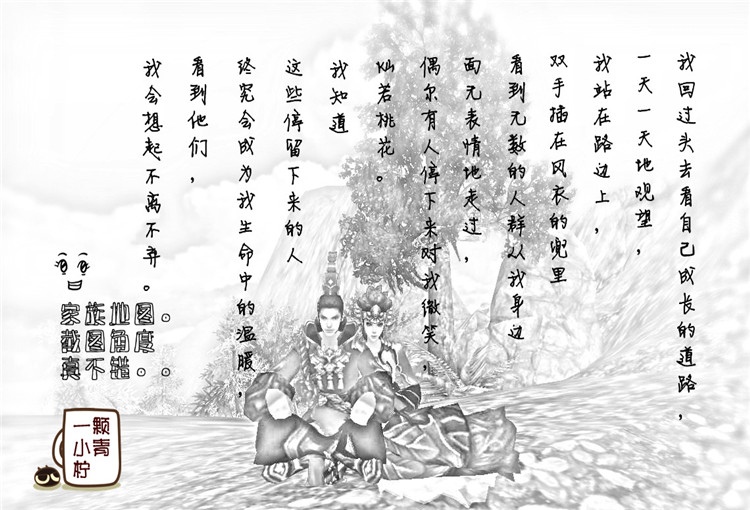 我回过头去看自己成长的道路，
一天一天地观望，
我站在路边上，
双手插在风衣的兜里
看到无数的人群从我身边
面无表情地走过，
偶尔有人停下来对我微笑，
灿若桃花。
我知道
这些停留下来的人
终究会成为我生命中的温暖，
看到他们，
我会想起不离不弃。
家族地图。
截图角度
真不错。。
一颗
小青
柠